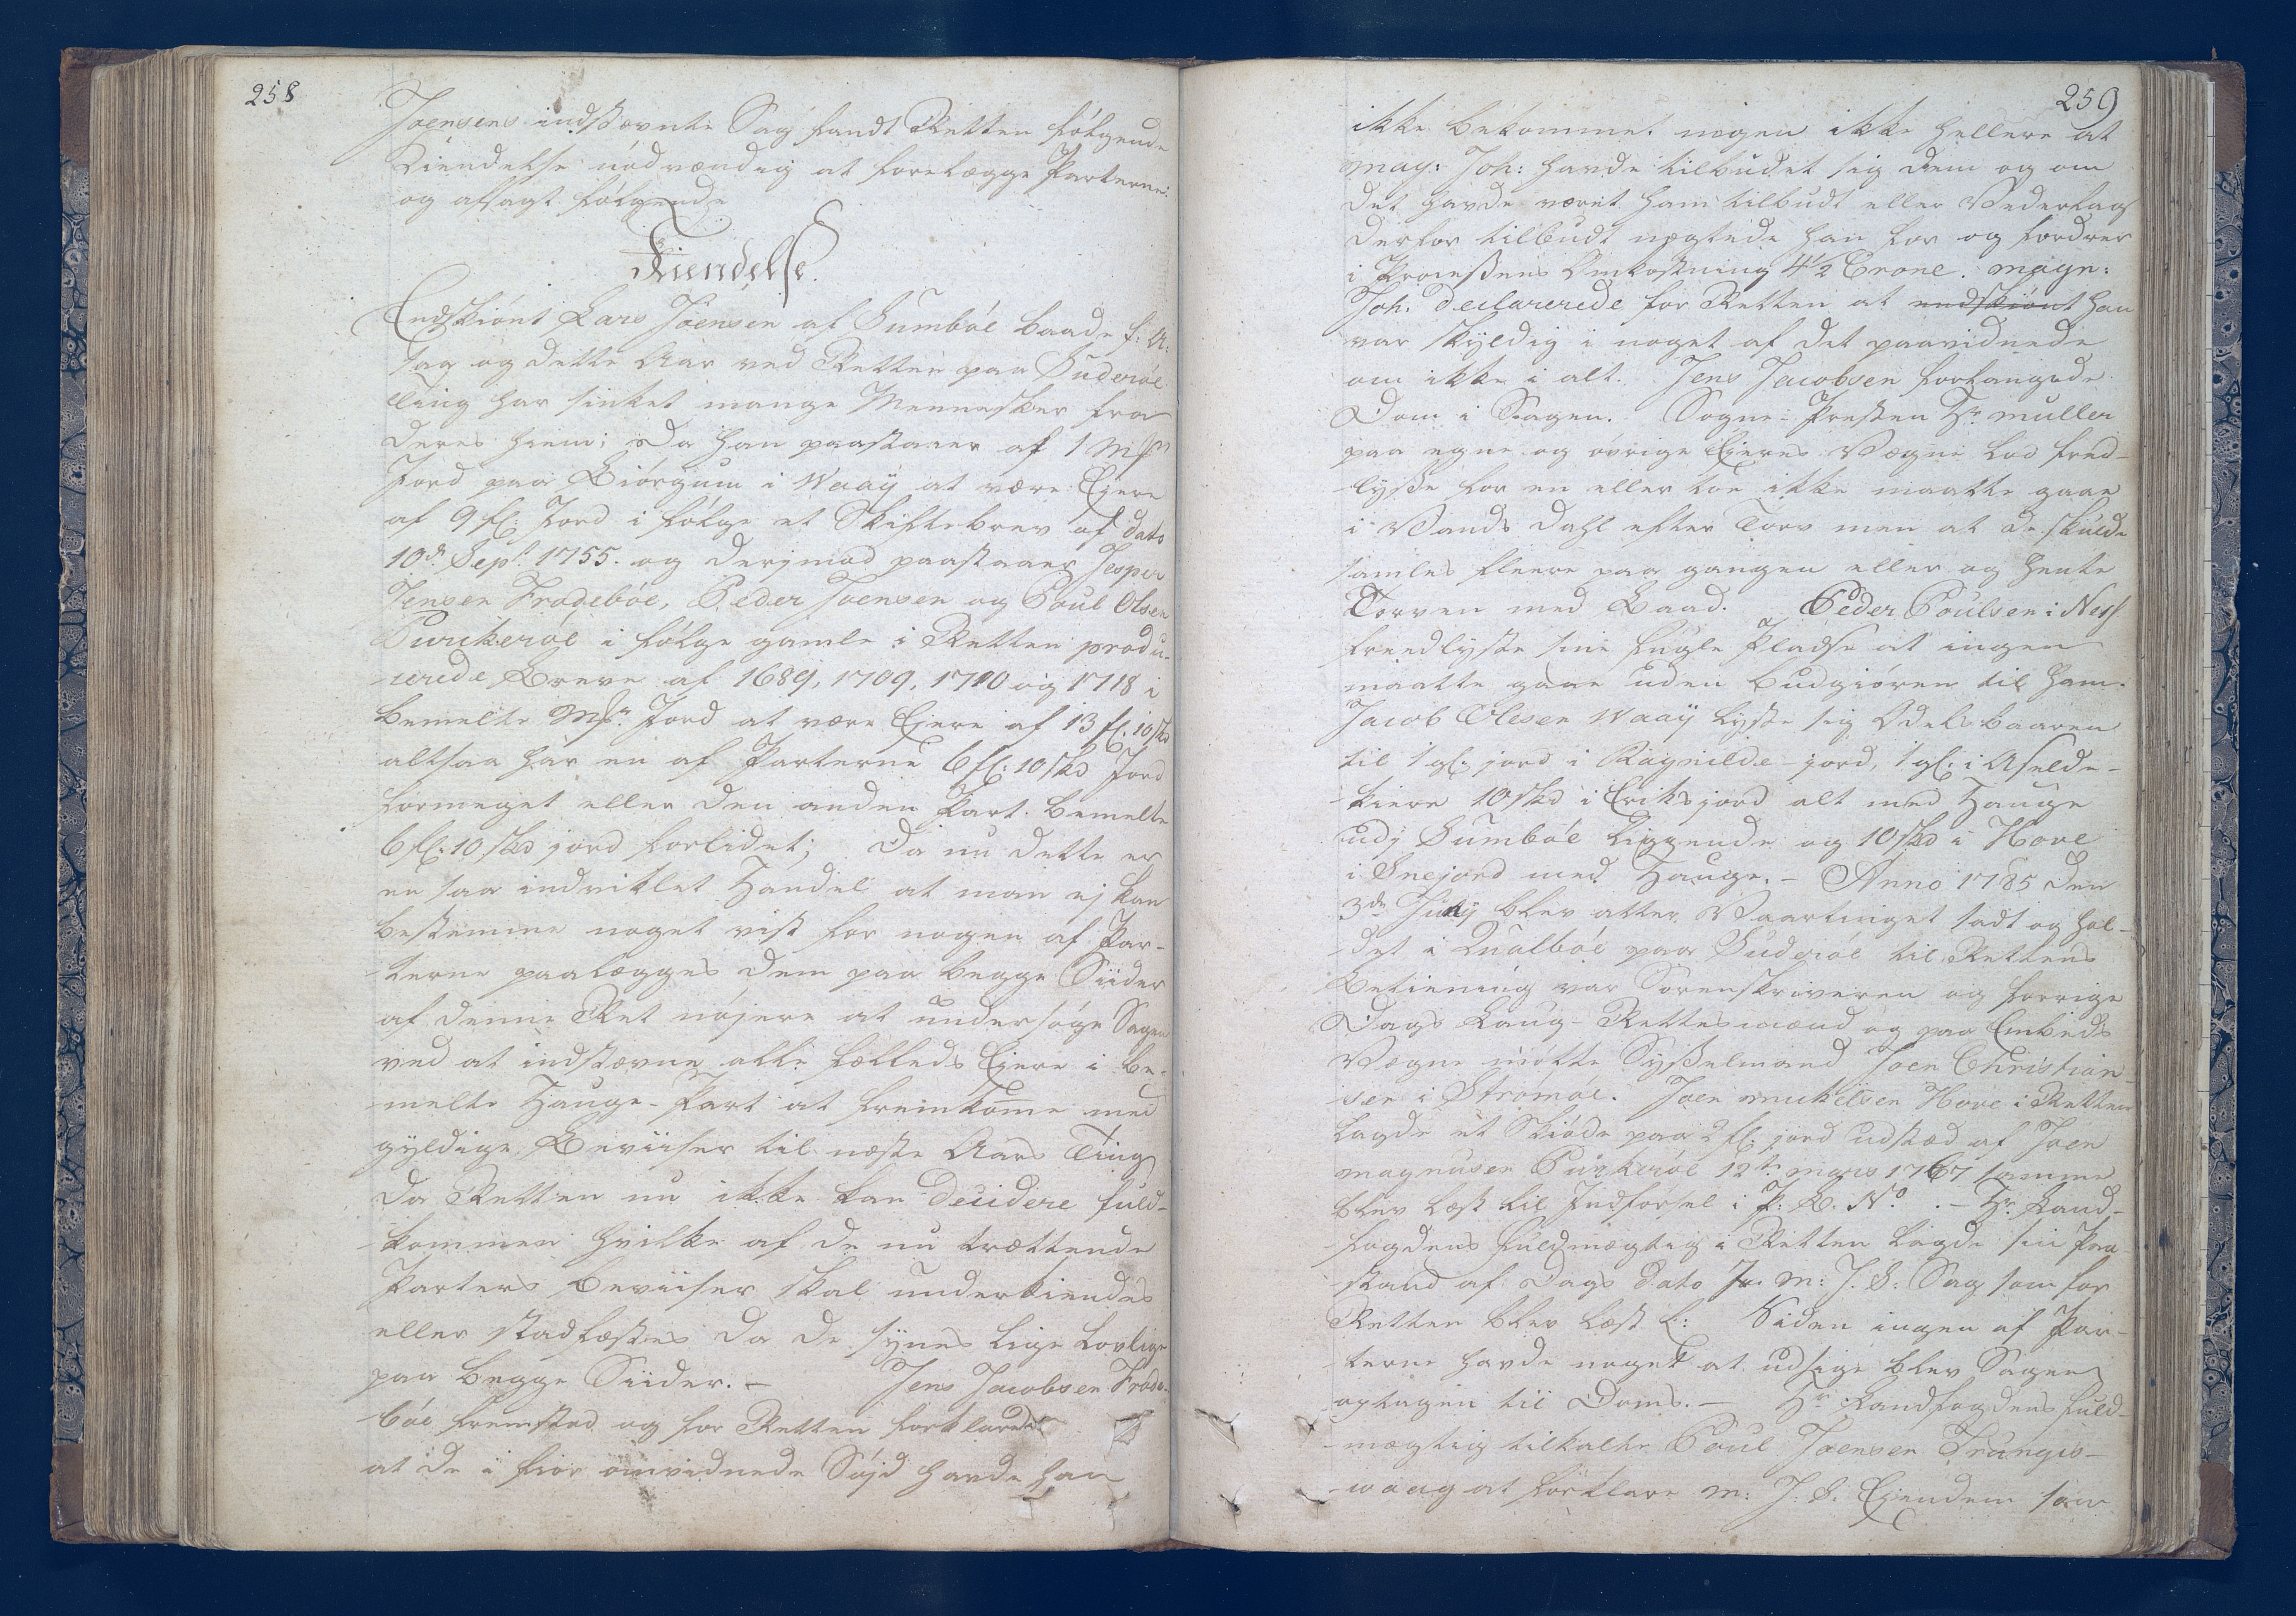 258
Joensens indstevnte Sag fandt Retten følgende
Kiendelse nødvændig at forelægge Parterne
og afsagt følgende
Kiendelse.
Endskiønt Lars Joensen af Sumbøe baade f: A:
sag og dette Aar ved Retten paa Suderøe
Ting har sinket mange Mennesker fra
deres hiem; da han paastaaer af 1 Mk
Jord paa Biørgum i Waaÿ at være Ejere
af 9 fl: Jord i følge et Skiftebrev af dato
10de Sept. 1755. og derjmod paastaaer Jesper
Jensen Frodebøe, Peder Joensen og Poul Olsen
Purikerøe i følge gamle i Retten produ-
-cerede Breve af 1689, 1709, 1710 og 1718 i
bemelte Mk. Jord at være Ejere af 13 fl. 10 skd
altsaa har en af Parterne 6 fl: 10 skd Jord
formeget eller den anden Part bemelte
6 fl: 10 skd jord forlidet; Da nu dette er
en saa indviklet Handel at man ej kan
bestemme noget vist for nogen af Par-
-terne paalægges dem paa begge Siider
af denne Ret nøjere at undersøge Sagen
ved at indstævne alle fælleds Ejere i be-
-melte Hauge-Part at fremkomme med
gyldige Beviiser til næste Aars Ting
da Retten nu ikke kan decidere fuld-
-kommen hvilke af de nu trættende
Parters Beviiser skal underkiendes
eller stadfæstes da de synes lige lovlige
paa begge Siider. — Jens Jacobsen Frode-
-bøe fremstod og for Retten forklarede
at de i fior omvidnede Søjd havde han
259
ikke bekommet nogen ikke hellere at
May: Joh: havde tilbudet sig dem og om
det havde været ham tilbudt eller Vederlag
derfor tilbudt nægtede han for og fordrer
i Processens Omkostning 4½ Crone. Magn:
Joh. declarerede for Retten at endskiønt han
var skyldig i noget af det paavidnede
om ikke i alt. Jens Jacobsen forlangede
Dom i Sagen. Sogne-Presten Hr. Muller
paa egne og øvrige Ejeres Vægne lod fred-
-lyse for en eller toe ikke maatte gaae
i Vands Dahl efter Torv men at de skulde
samles fleere paa gangen eller og hente
Torven med Baad. Peder Poulsen i Ness
freedlyste sine fugle Pladse at ingen
maatte gaae uden budgiøren til ham.
Jacob Olesen Waaÿ lyste sig Odelsbaaren
til 1 gl. jord i Ragnilde-jord, 1 gl: i Aselde-
-kiere 10 skd i Eriksjord alt med Hauge
udj Sumbøe liggende og 10 skd i Hove
i Snejord med Hauge. — Anno 1785 den
3de Julÿ blev atter Vaartinget sadt og hol-
-det i Qualbøe paa Suderøe til Rettens
Betiening var Sorenskriveren og forrige
Dags Laug-Rettesmænd og paa Embeds
Vægne møtte Sysselmand Joen Christian-
-sen i Strømøe. Joen Mickelsen Hove i Retten
lagde et Skiøde paa 2 fl: jord udstæd af Joen
Magnusen Purkerøe 12te Marts 1767 samme
blev læst til Indførsel i P: B. No . — Hr. Land-
-fogdens fuldmægtig i Retten lagde sin Paa-
-stand af Dags Dato M: J. S: Sag som for
Retten blev læst Siden ingen af Par-
-terne havde noget at udsige blev Sagen
optagen til Doms. — Hr. Landfogdens fuld-
-mægtig tilkalte Poul Joensen Trungis-
-waag at forklare M: J: S: Ejendom som